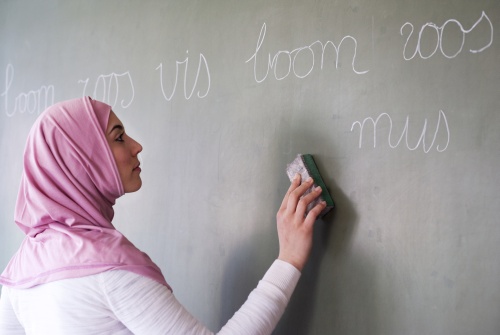 boom roos vis boom roos
mus